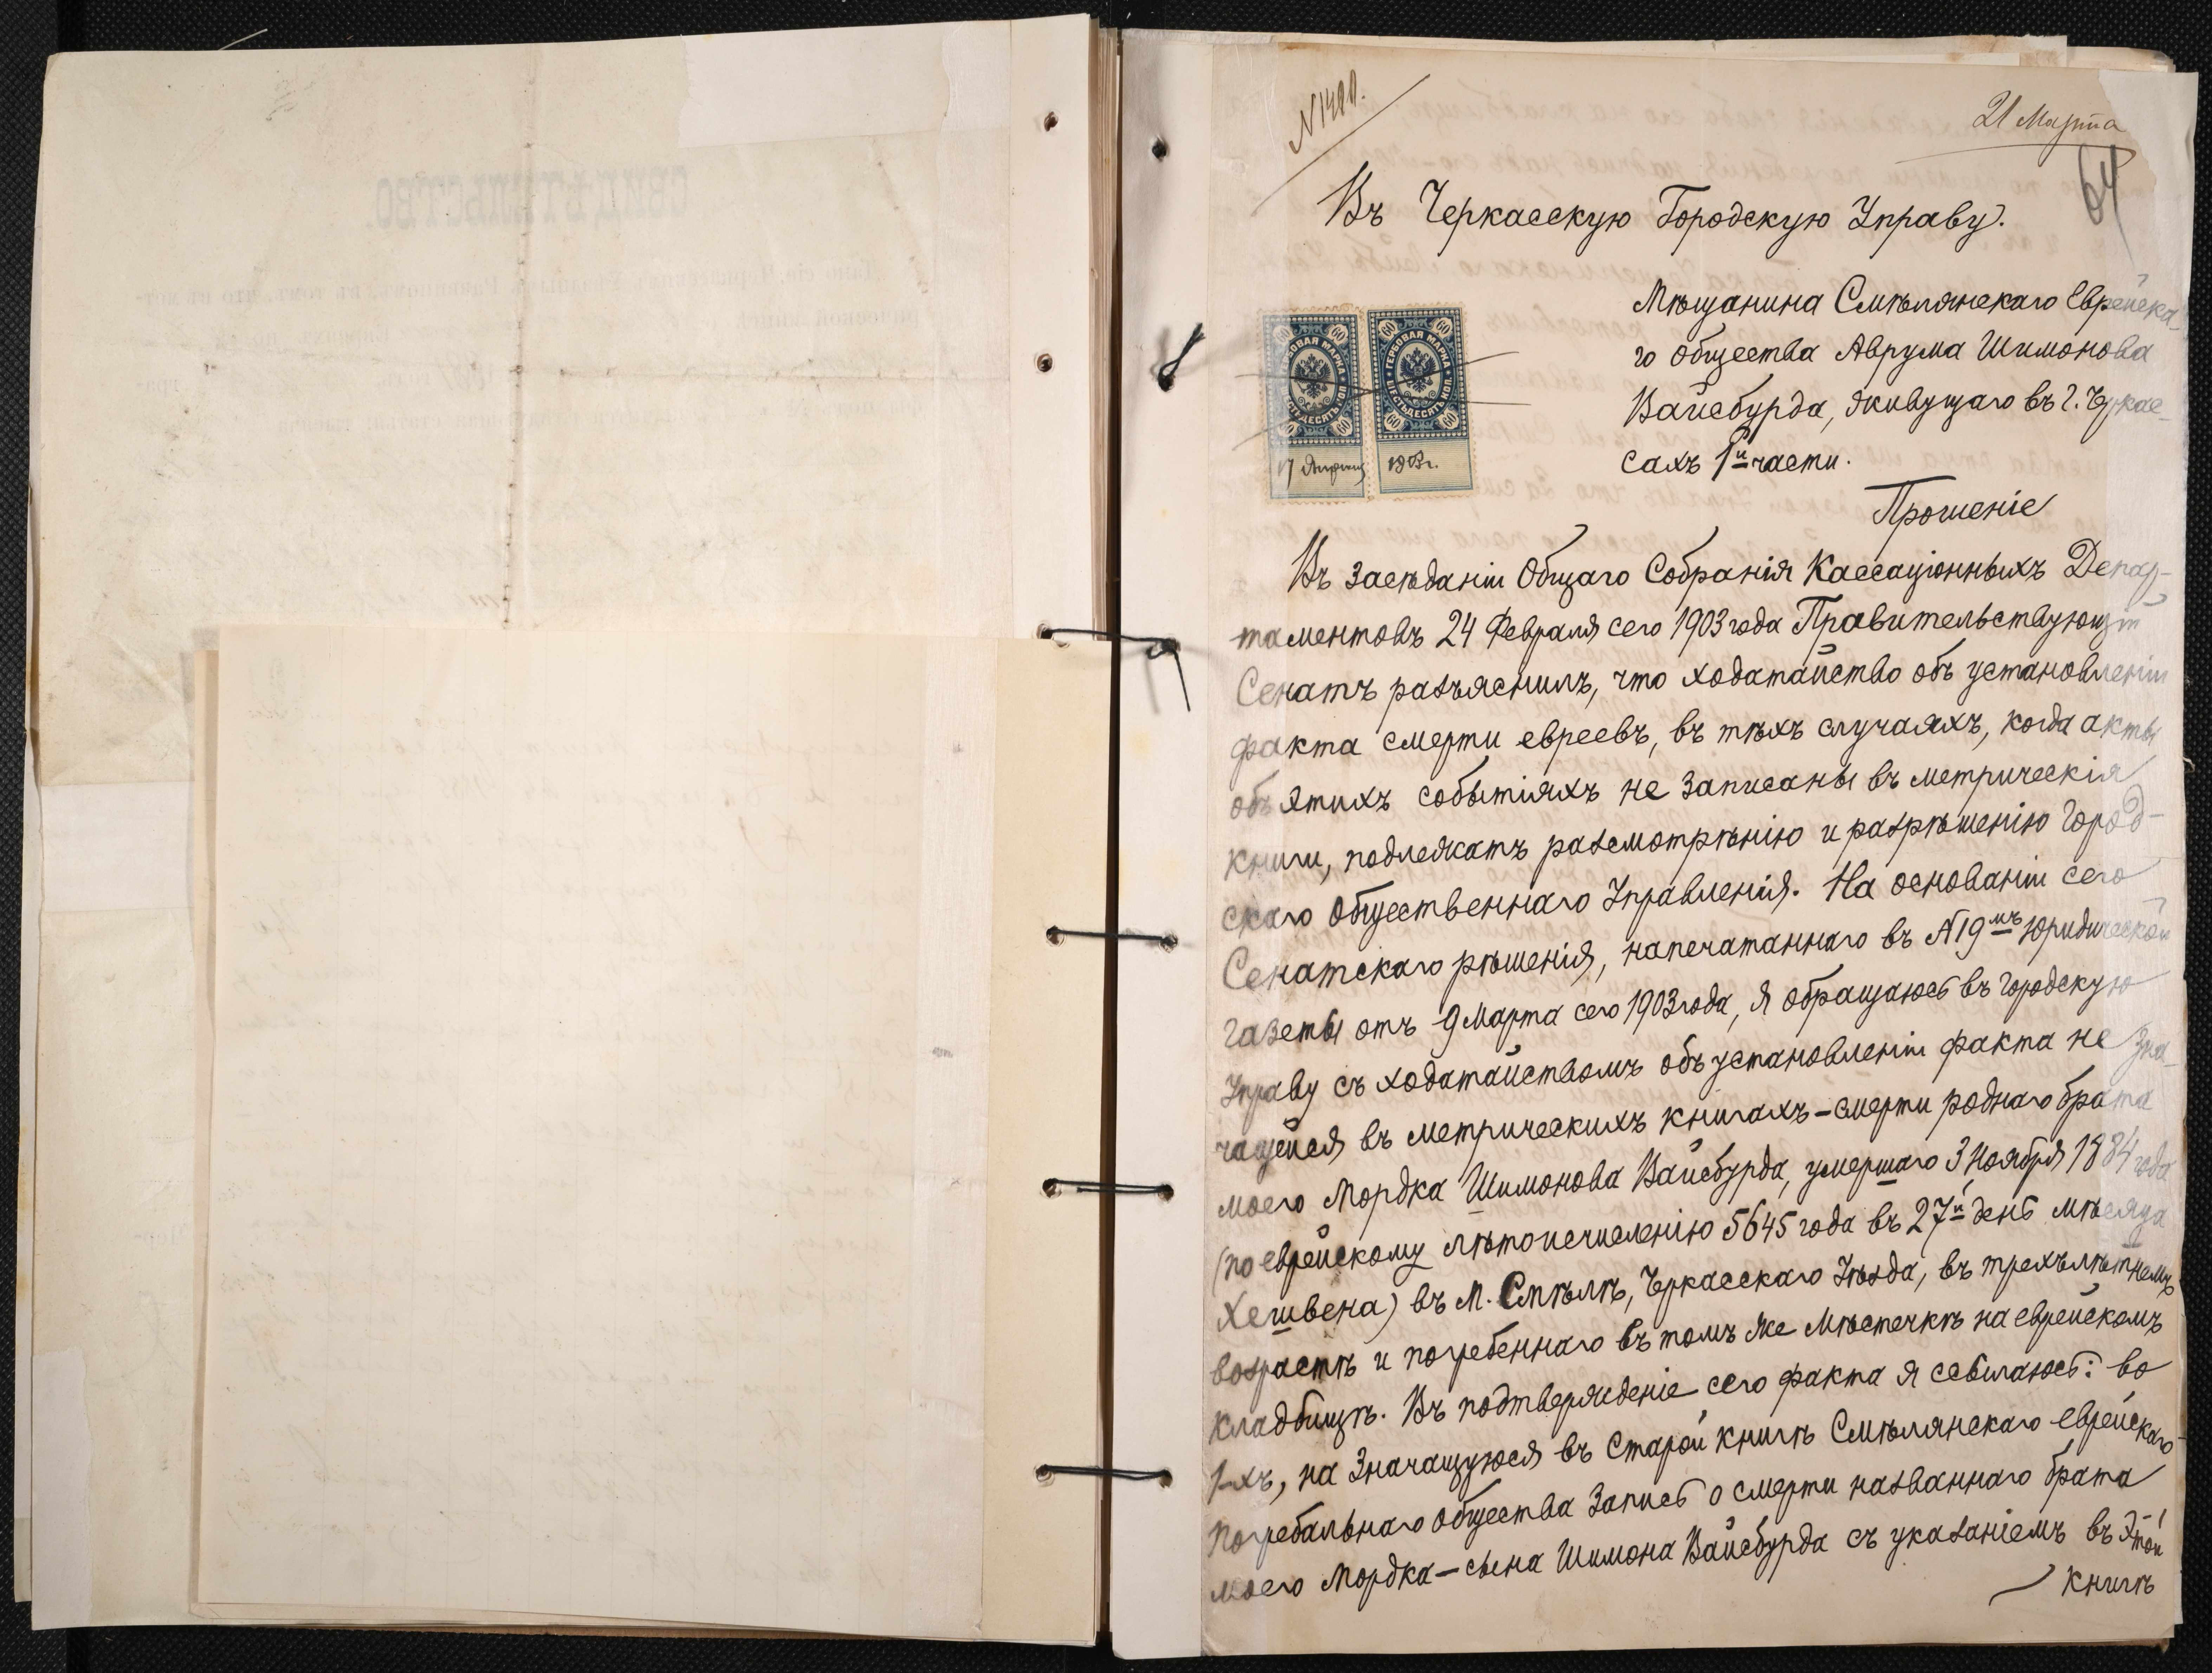 N1490.
21 Марта
64
Въ Черкасскую Городскую Управу.
Мѣщанина Смѣлянскаго Еврейска-
го Общества Аврума Шимонова
Вайсбурда, живущаго въ г. Черкас-
сахъ 1й части.
ГЕРБОВАЯ МАРКА
60
ГЕРБОВАЯ МАРКА
ШЕСТЬДЕСЯТЪ КОП.
60
17 Апрѣля 1903г.
Прошеніе
Въ засѣданіи Общаго Собранія Кассаціонныхъ Депар-
таментовъ 24 Февраля сего 1903 года Правительствующій
Сенатъ разъяснилъ, что ходатайство объ установленіи
факта смерти евреевъ, въ тѣхъ случаяхъ, когда акты
объ этихъ событіяхъ не записаны въ метрическія
книги, подлежатъ разсмотрѣнію и разрѣшенію Город-
скаго Общественнаго Управленія. На основаніи сего
Сенатскаго рѣшенія, напечатаннаго въ N19мъ Юридической
газеты отъ 9 Марта сего 1903 года, я обращаюсь въ Городскую
Управу съ ходатайствомъ объ установленіи факта не зна-
чащейся въ метрическихъ книгахъ - смерти роднаго брата
моего Мордка Шимонова Вайсбурда, умершаго 3 Ноября 1884 года
(по еврейскому лѣтоисчисленію 5645 года въ 27й день мѣсяца
Хешвена) въ м. Смѣлѣ, Черкасскаго Уѣзда, въ трехълѣтнемъ
возрастѣ и погребеннаго въ томъ же Мѣстечкѣ на еврейскомъ
кладбищѣ. Въ подтвержденіе сего факта я ссылаюсь: во
1-хъ, на значащуюся въ Старой книгѣ Смѣлянскаго еврейскаго
погребальнаго общества запись о смерти названнаго брата
моего Мордка - сына Шимона Вайсбурда съ указаніемъ въ этой
книгѣ
СВИДѢТЕЛЬСТВО.